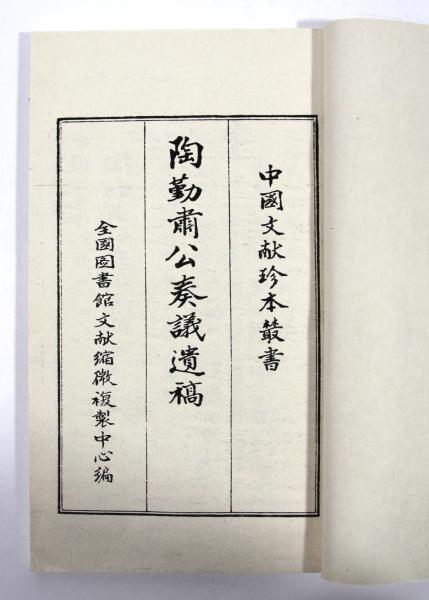 中國文献珍本叢書
陶勤肅公奏議遺稿
全國图書館文献縮微複製中心編